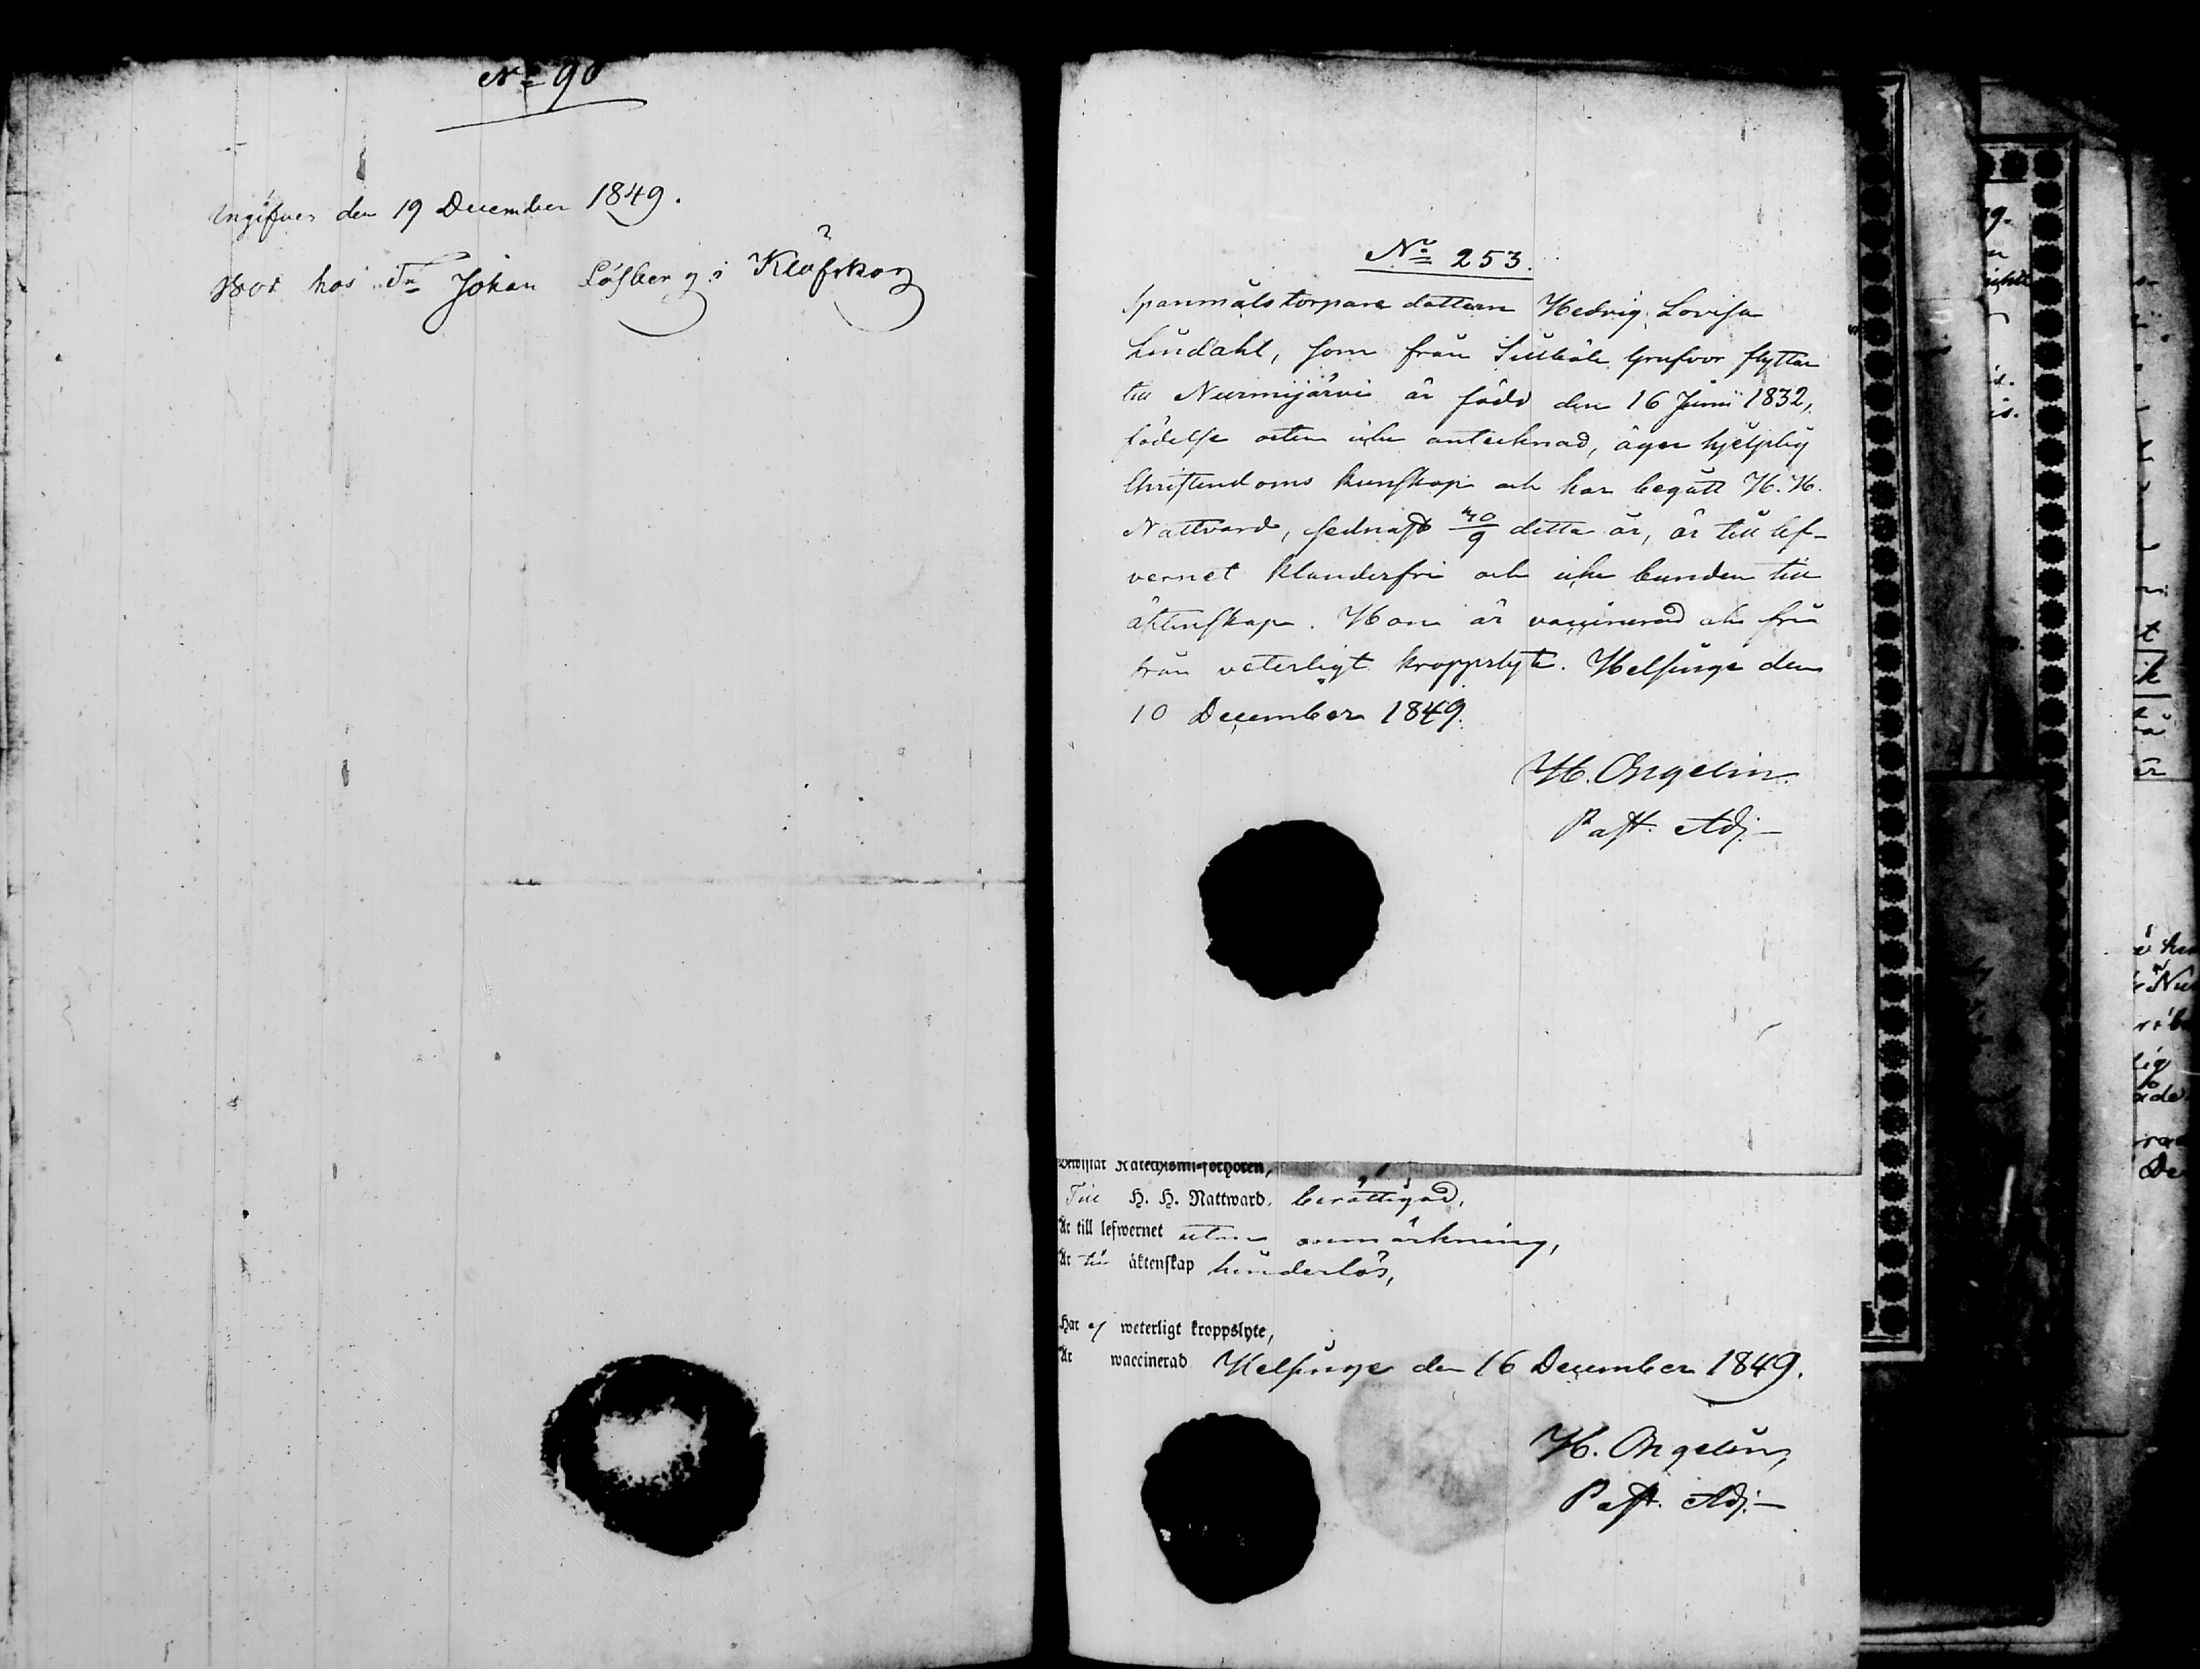 No 90
Ingifven den 19 December 1849.
Bor hos Johan Löfberg i Klöfskog
No 253.
Spanmålstorpare dottern Hedvig Lovisa
Lindahl, som från Sillböle Grufvor flyttar
till Nurmijärvi är född den 16 Junii 1832,
födelse orten icke antecknad, äger hjelplig
Christendoms kunskap och har begått H. H.
Nattvard, sednast 30/9 detta år, är till lef-
vernet klanderfri och icke bunden till
äktenskap. Hon är vaccinerad och fri
från veterligt kroppslyte. Helsinge den
10 December 1849.
H. Ongelin.
Past. Adj.
Bewistat Katechismi-förhören,
Till H. H. Nattward. berättigad,
Är till lefwernet utan anmärkning,
Är till äktenskap hinderlös,
Har ej weterligt kroppslyte,
Är waccinerad Helsinge den 16 December 1849.
H. Ongelin,
Past. Adj.